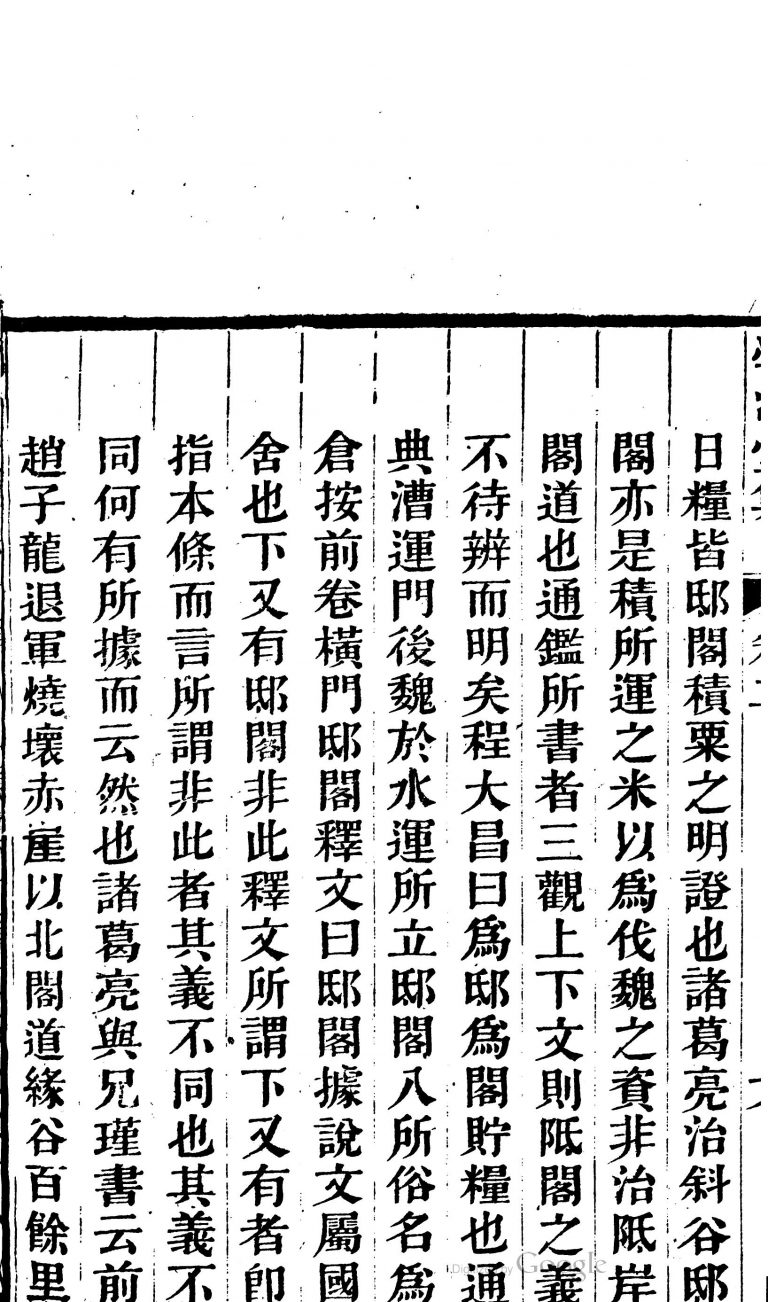 日糧皆邸閣積粟之明證也諸葛亮治斜谷邸
閣亦是積所運之米以爲伐魏之資非治阺岸
閣道也通鑑所書者三觀上下文則阺閣之義
不待辨而明矣程大昌曰爲邸爲閣貯糧也通
典漕運門後魏於水運所立邸閣八所俗名爲
倉按前卷橫門邸閣釋文曰邸閣據說文屬國
舍也下又有邸閣非此釋文所謂下又有者卽
指本條而言所謂非此者其義不同也其義不
同何有所據而云然也諸葛亮與兄瑾書云前
趙子龍退軍燒壞赤崖以北閣道緣谷百餘里
Google